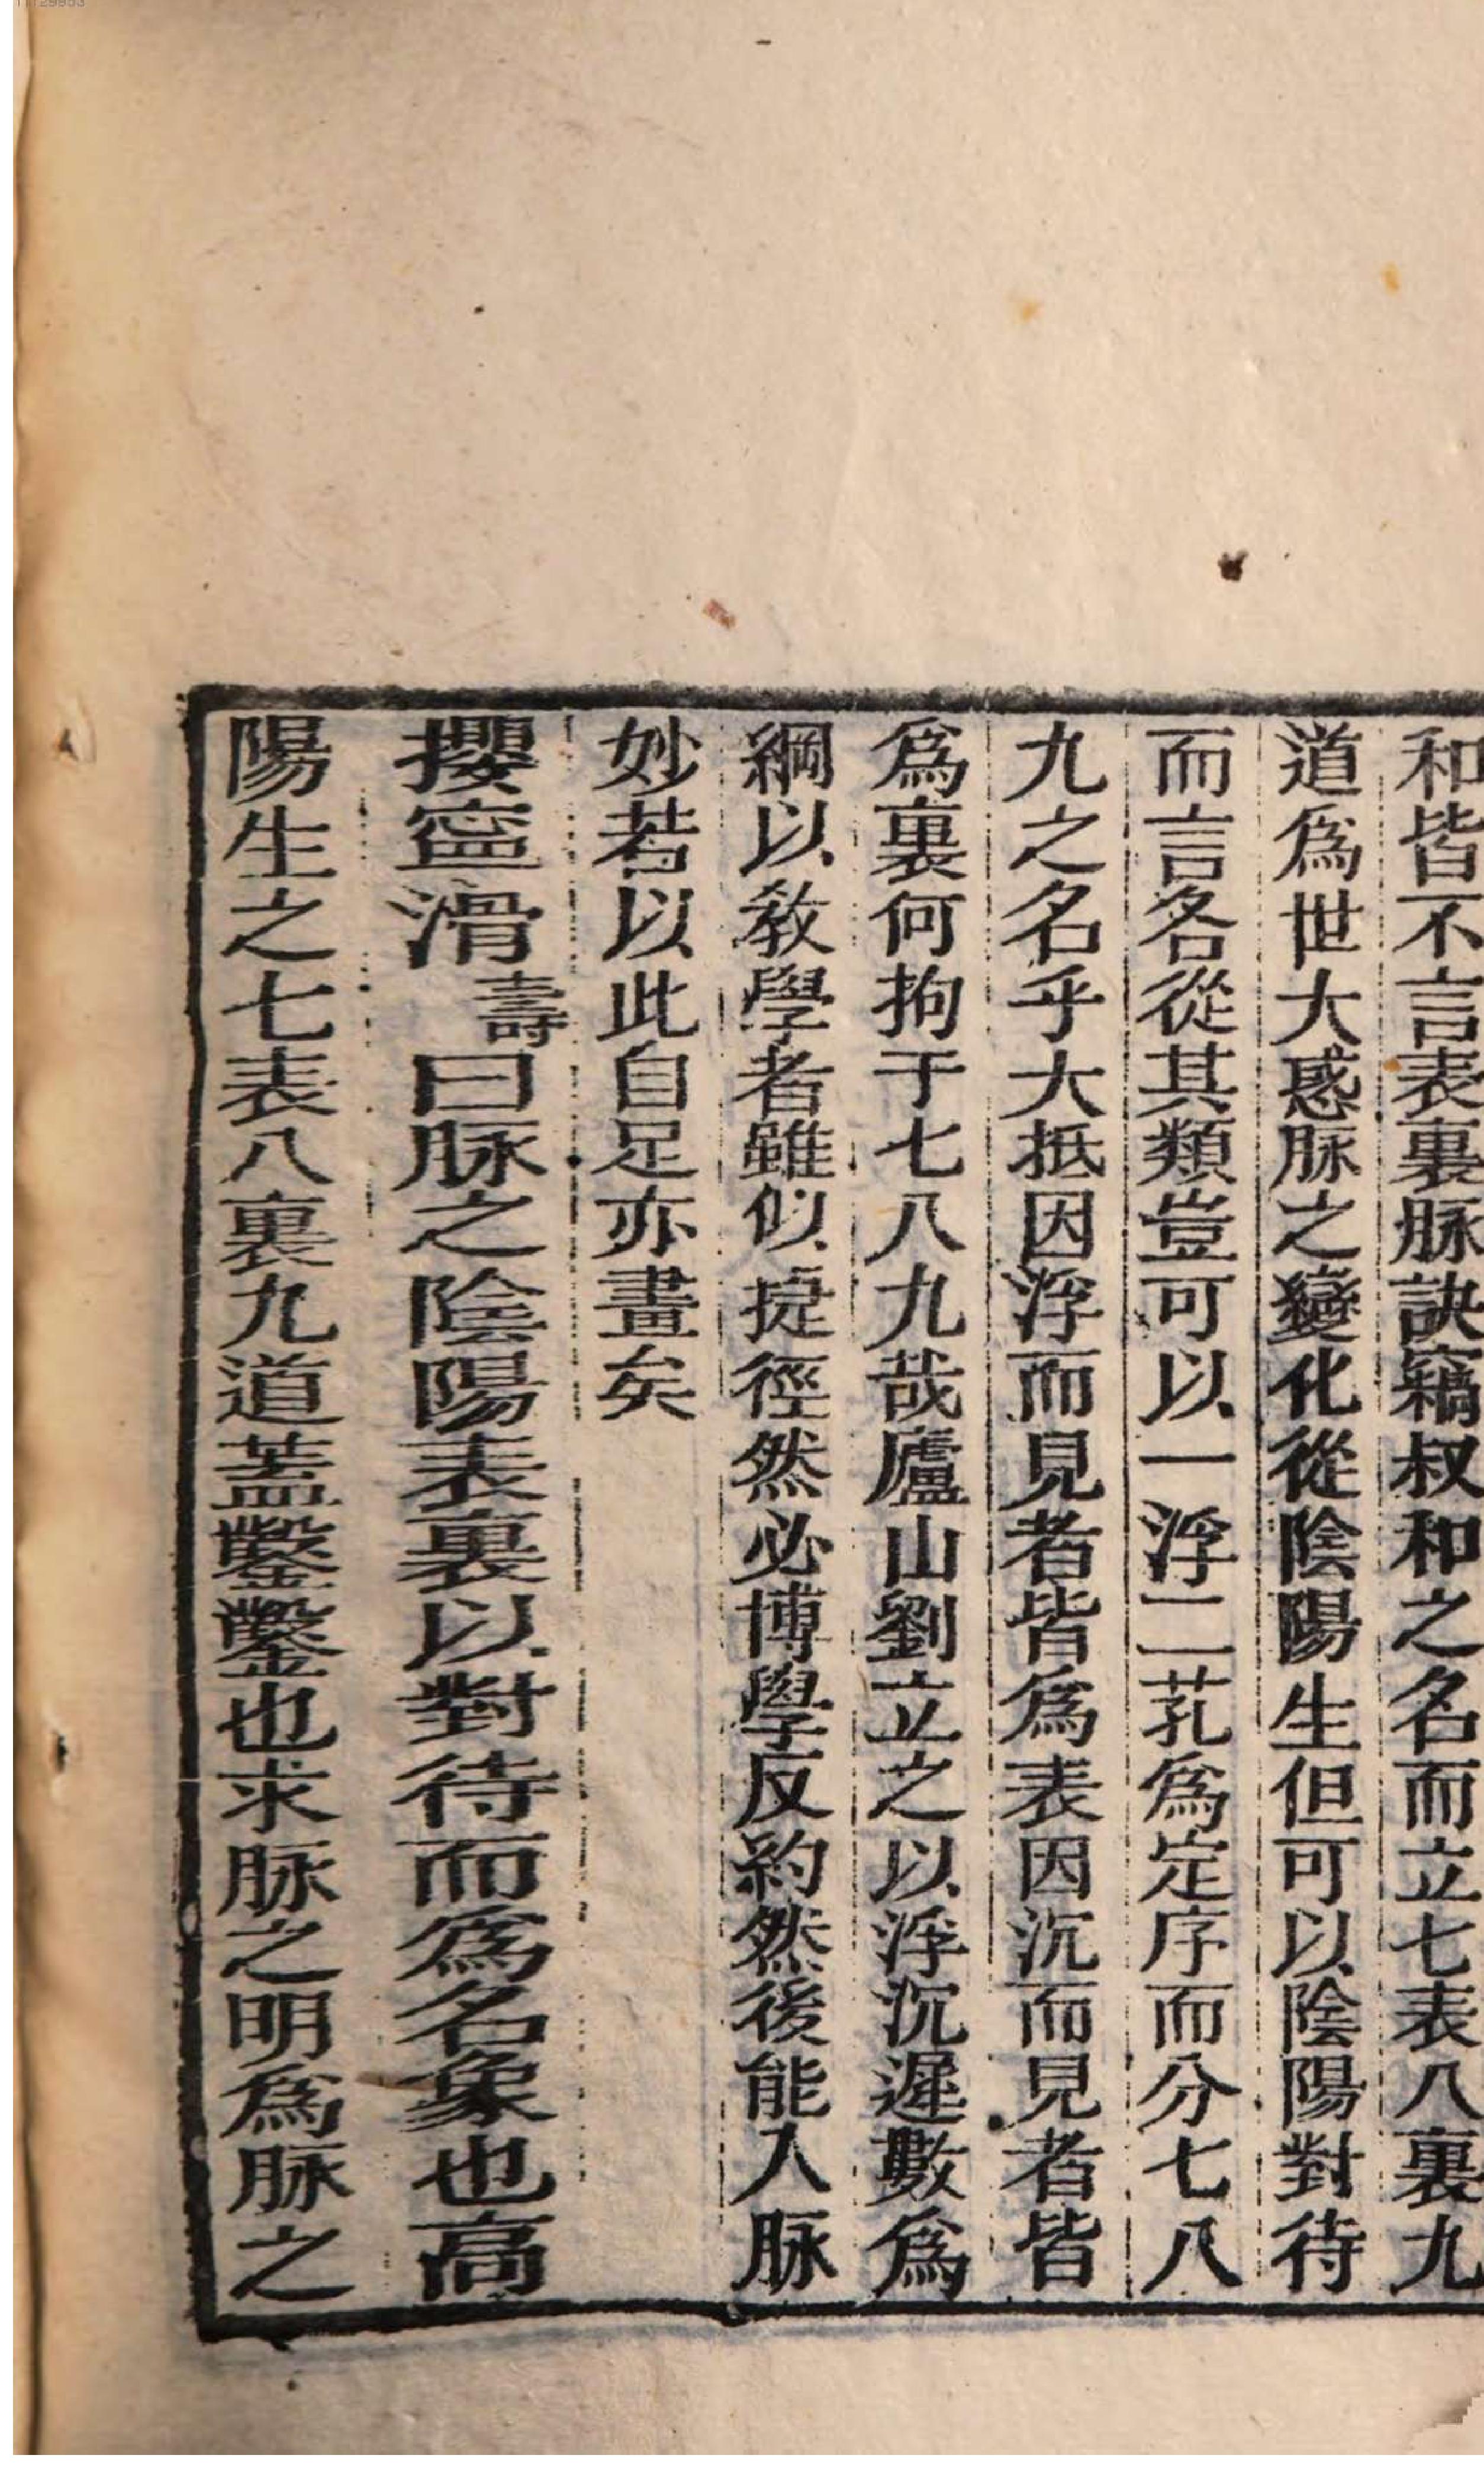 和皆不言表裏脉訣竊叔和之名而立七表八裏九
道爲世大惑脉之變化從陰陽生但可以陰陽對待
而言各從其類豈可以一浮二芤爲定序而分七八
九之名乎大抵因浮而見者皆爲表因沉而見者皆
爲裏何拘于七八九哉廬山劉立之以浮沉遲數爲
綱以教學者雖似捷徑然必博學反約然後能入脉
妙若以此自足亦畫矣
攖寧滑壽曰脉之陰陽表裏以對待而爲名象也高
陽生之七表八裏九道蓋鑿鑿也求脉之明爲脉之